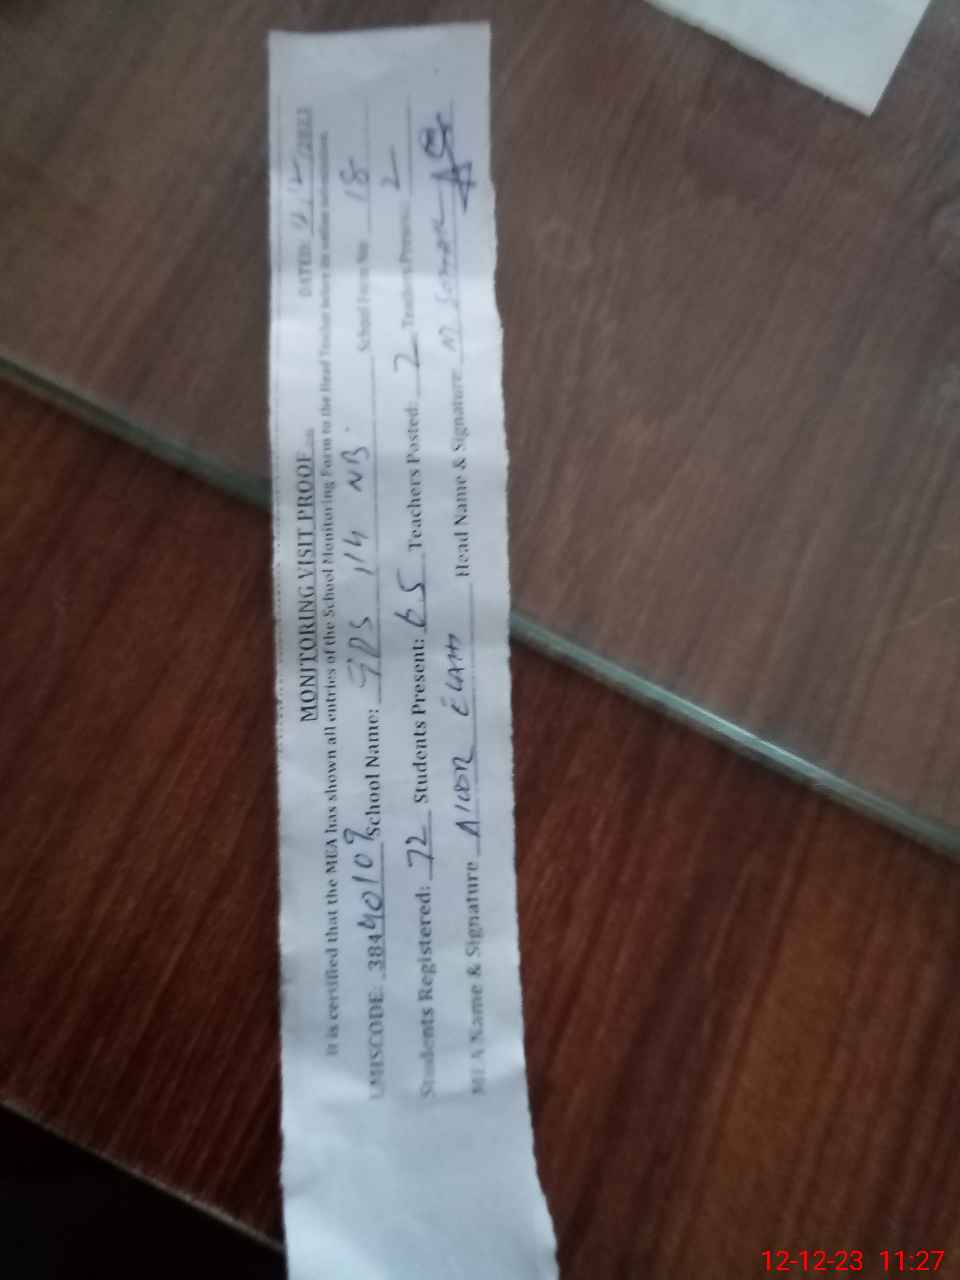 MONITORING VISIT PROOF
DATED: 12/2023
It is certified that the MEA has shown all entries of the School Monitoring Form to the Head Teacher before
EMISCODE: 38440109 School Name: GPS 114 NB School Form No 18
Students Registered: 72 Students Present: 65 Teachers Posted: 2 Teachers Present: 2
MEA Name & Signature Head Name & Signature
12-12-23 11:27